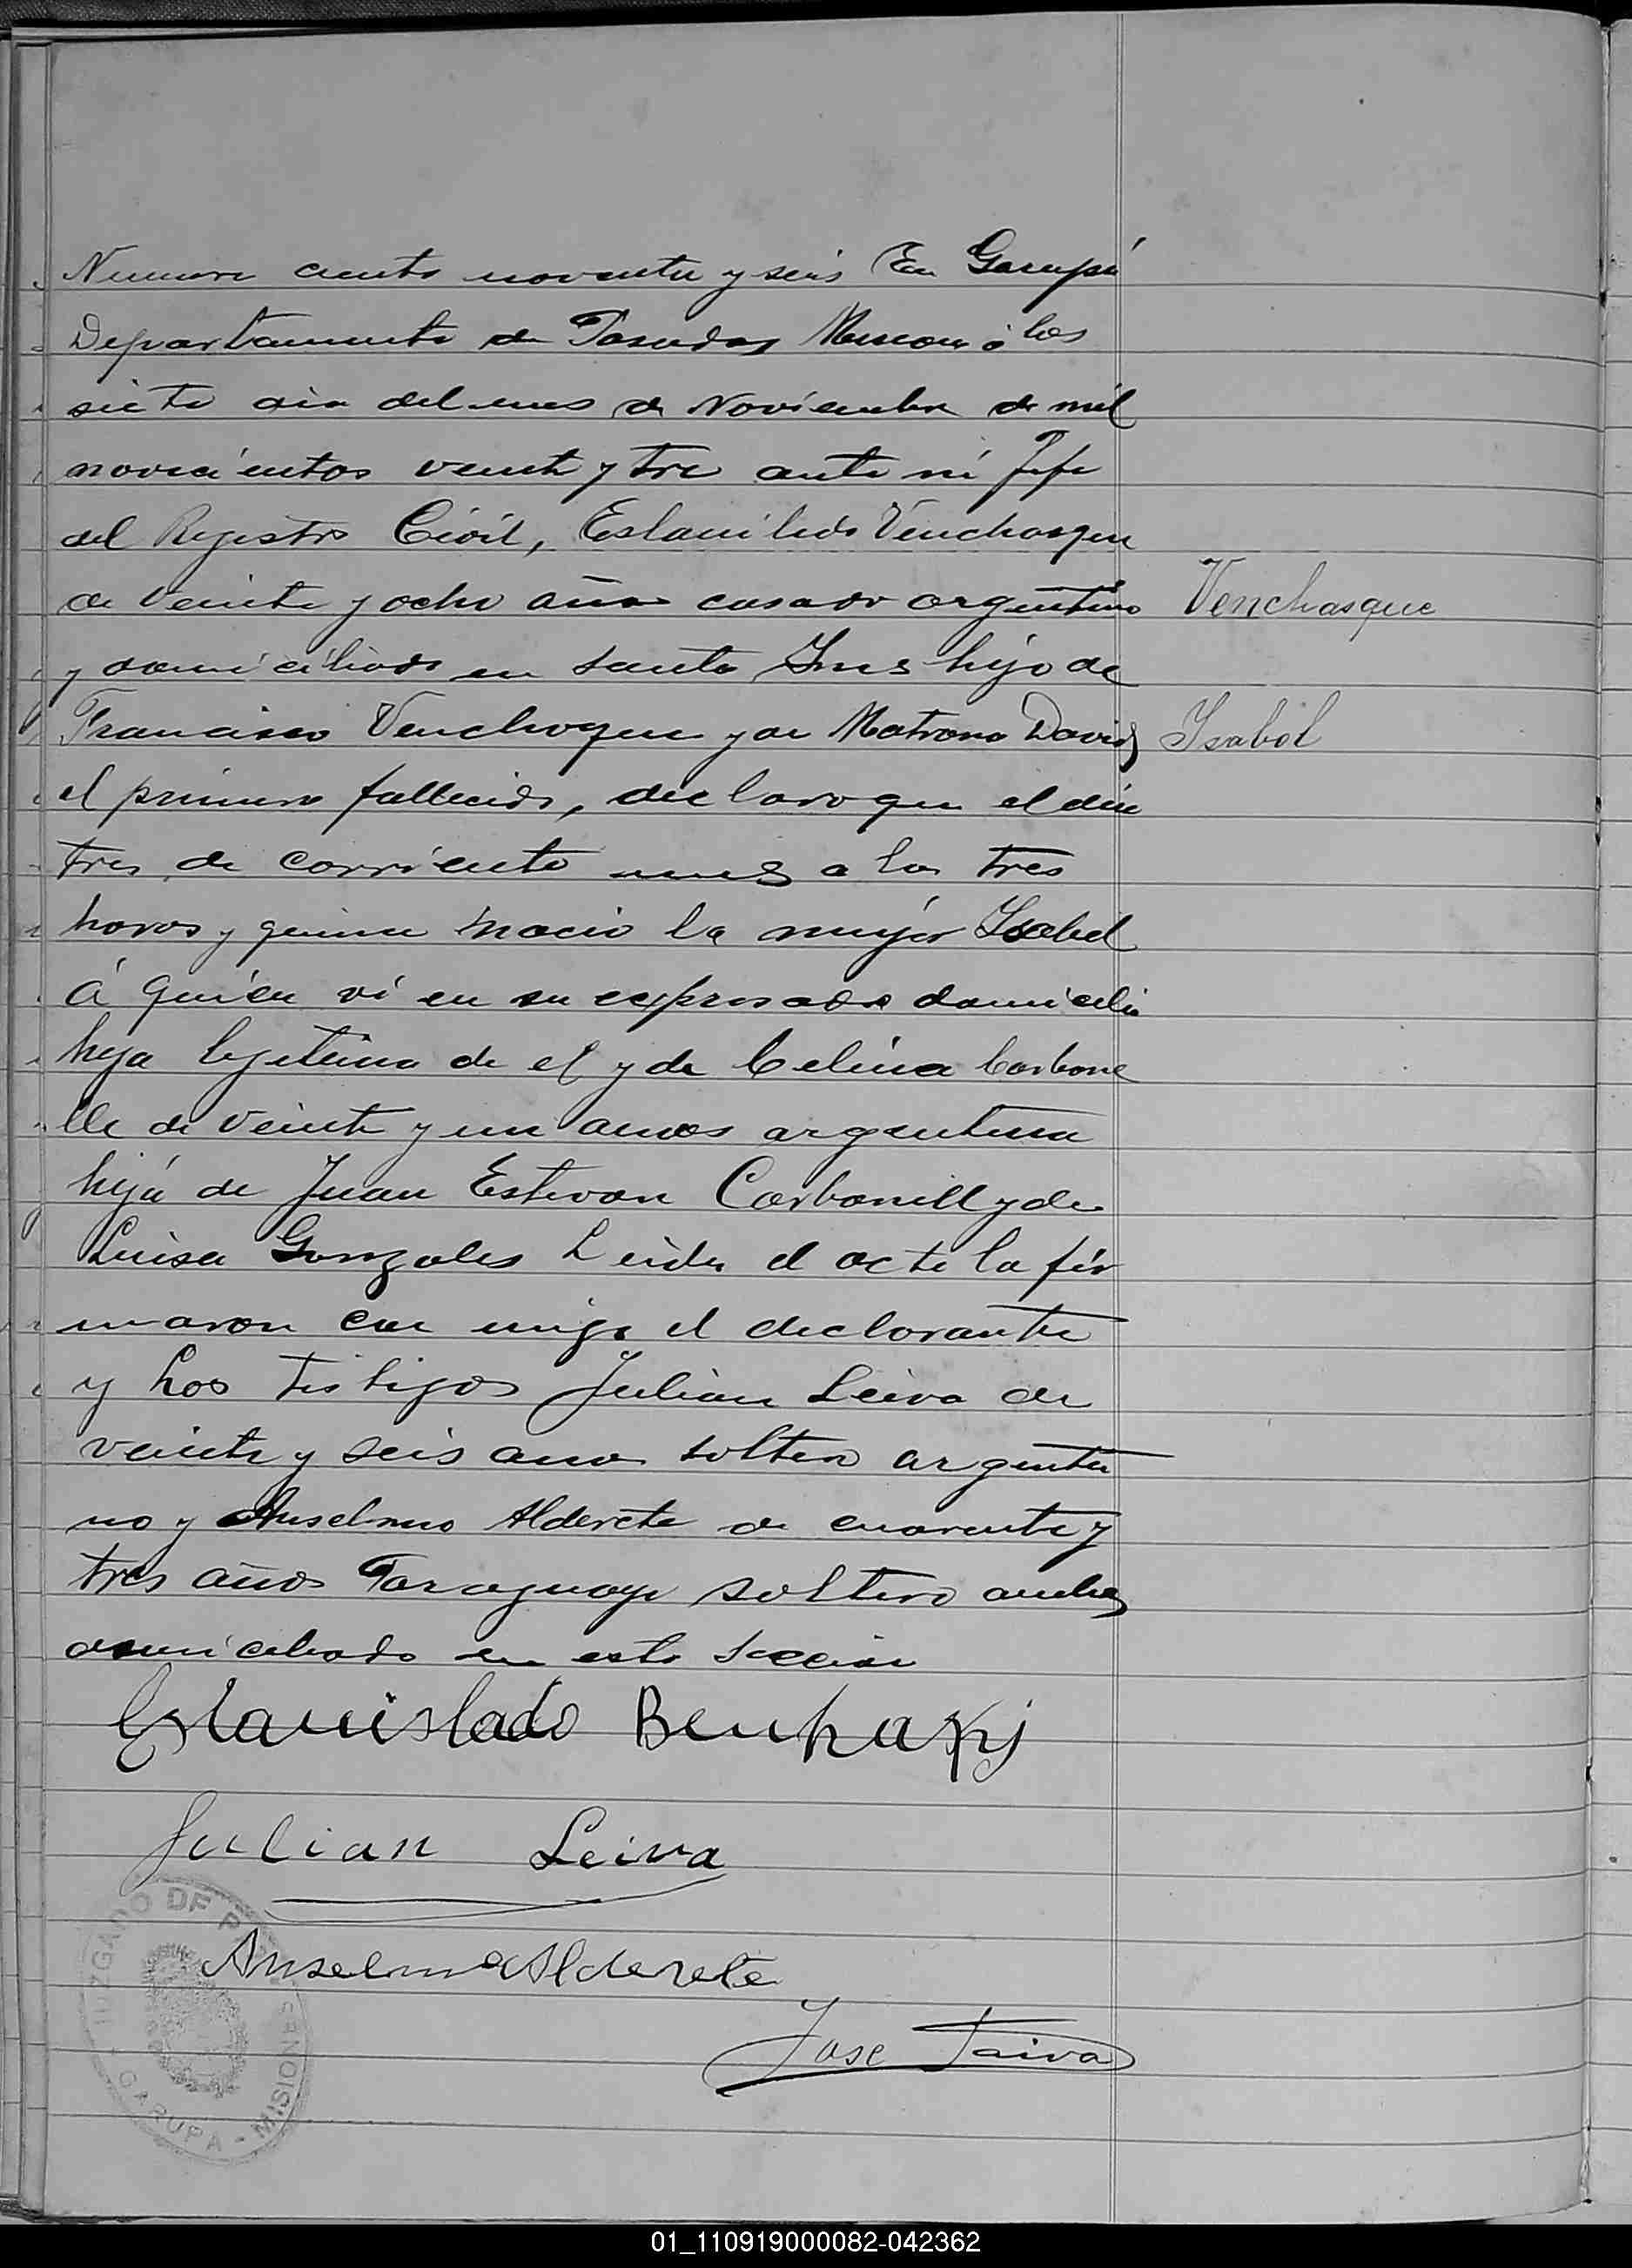 Numero ciento noventa y seis En Garupá
Departamento de Posadas Misiones á los
siete dia del mes de Noviembre de mil
novecientos veinte y tre ante mi Jefe
del Registro Civil, Eslanilado Venchasque
de veinte y ocho años casado argentino
Venchasque
y domiciliado en santa Ines hijo de
Francisco Venchasque y de Matrona David
Isabel
el primero fallecido, declaro que el dia
tres de corriente mes a las tres
horas y quince nacio la mujer Isabel
á quien vi en su expresado domicilio
hija lejitima de el y de Celina Carbone
lle de veinte y un anos argentina
hija de Juan Estevan Carbonill y de
Luisa Gonzales Leida el acta la fir
maron con migo el declarante
y los testigos Julian Leiva de
veinte y seis anos soltero argenti
no y Anselmo Alderete de cuarenta y
tres años Paraguayo soltero ambos
domiciliado en esta seccion
Estanislado Benhaxki
Julian Leiva
Anselmo Alderete
Jose Paiva
JUZGADO DE PAZ
MISIONES
- GARUPA -
01_110919000082-042362